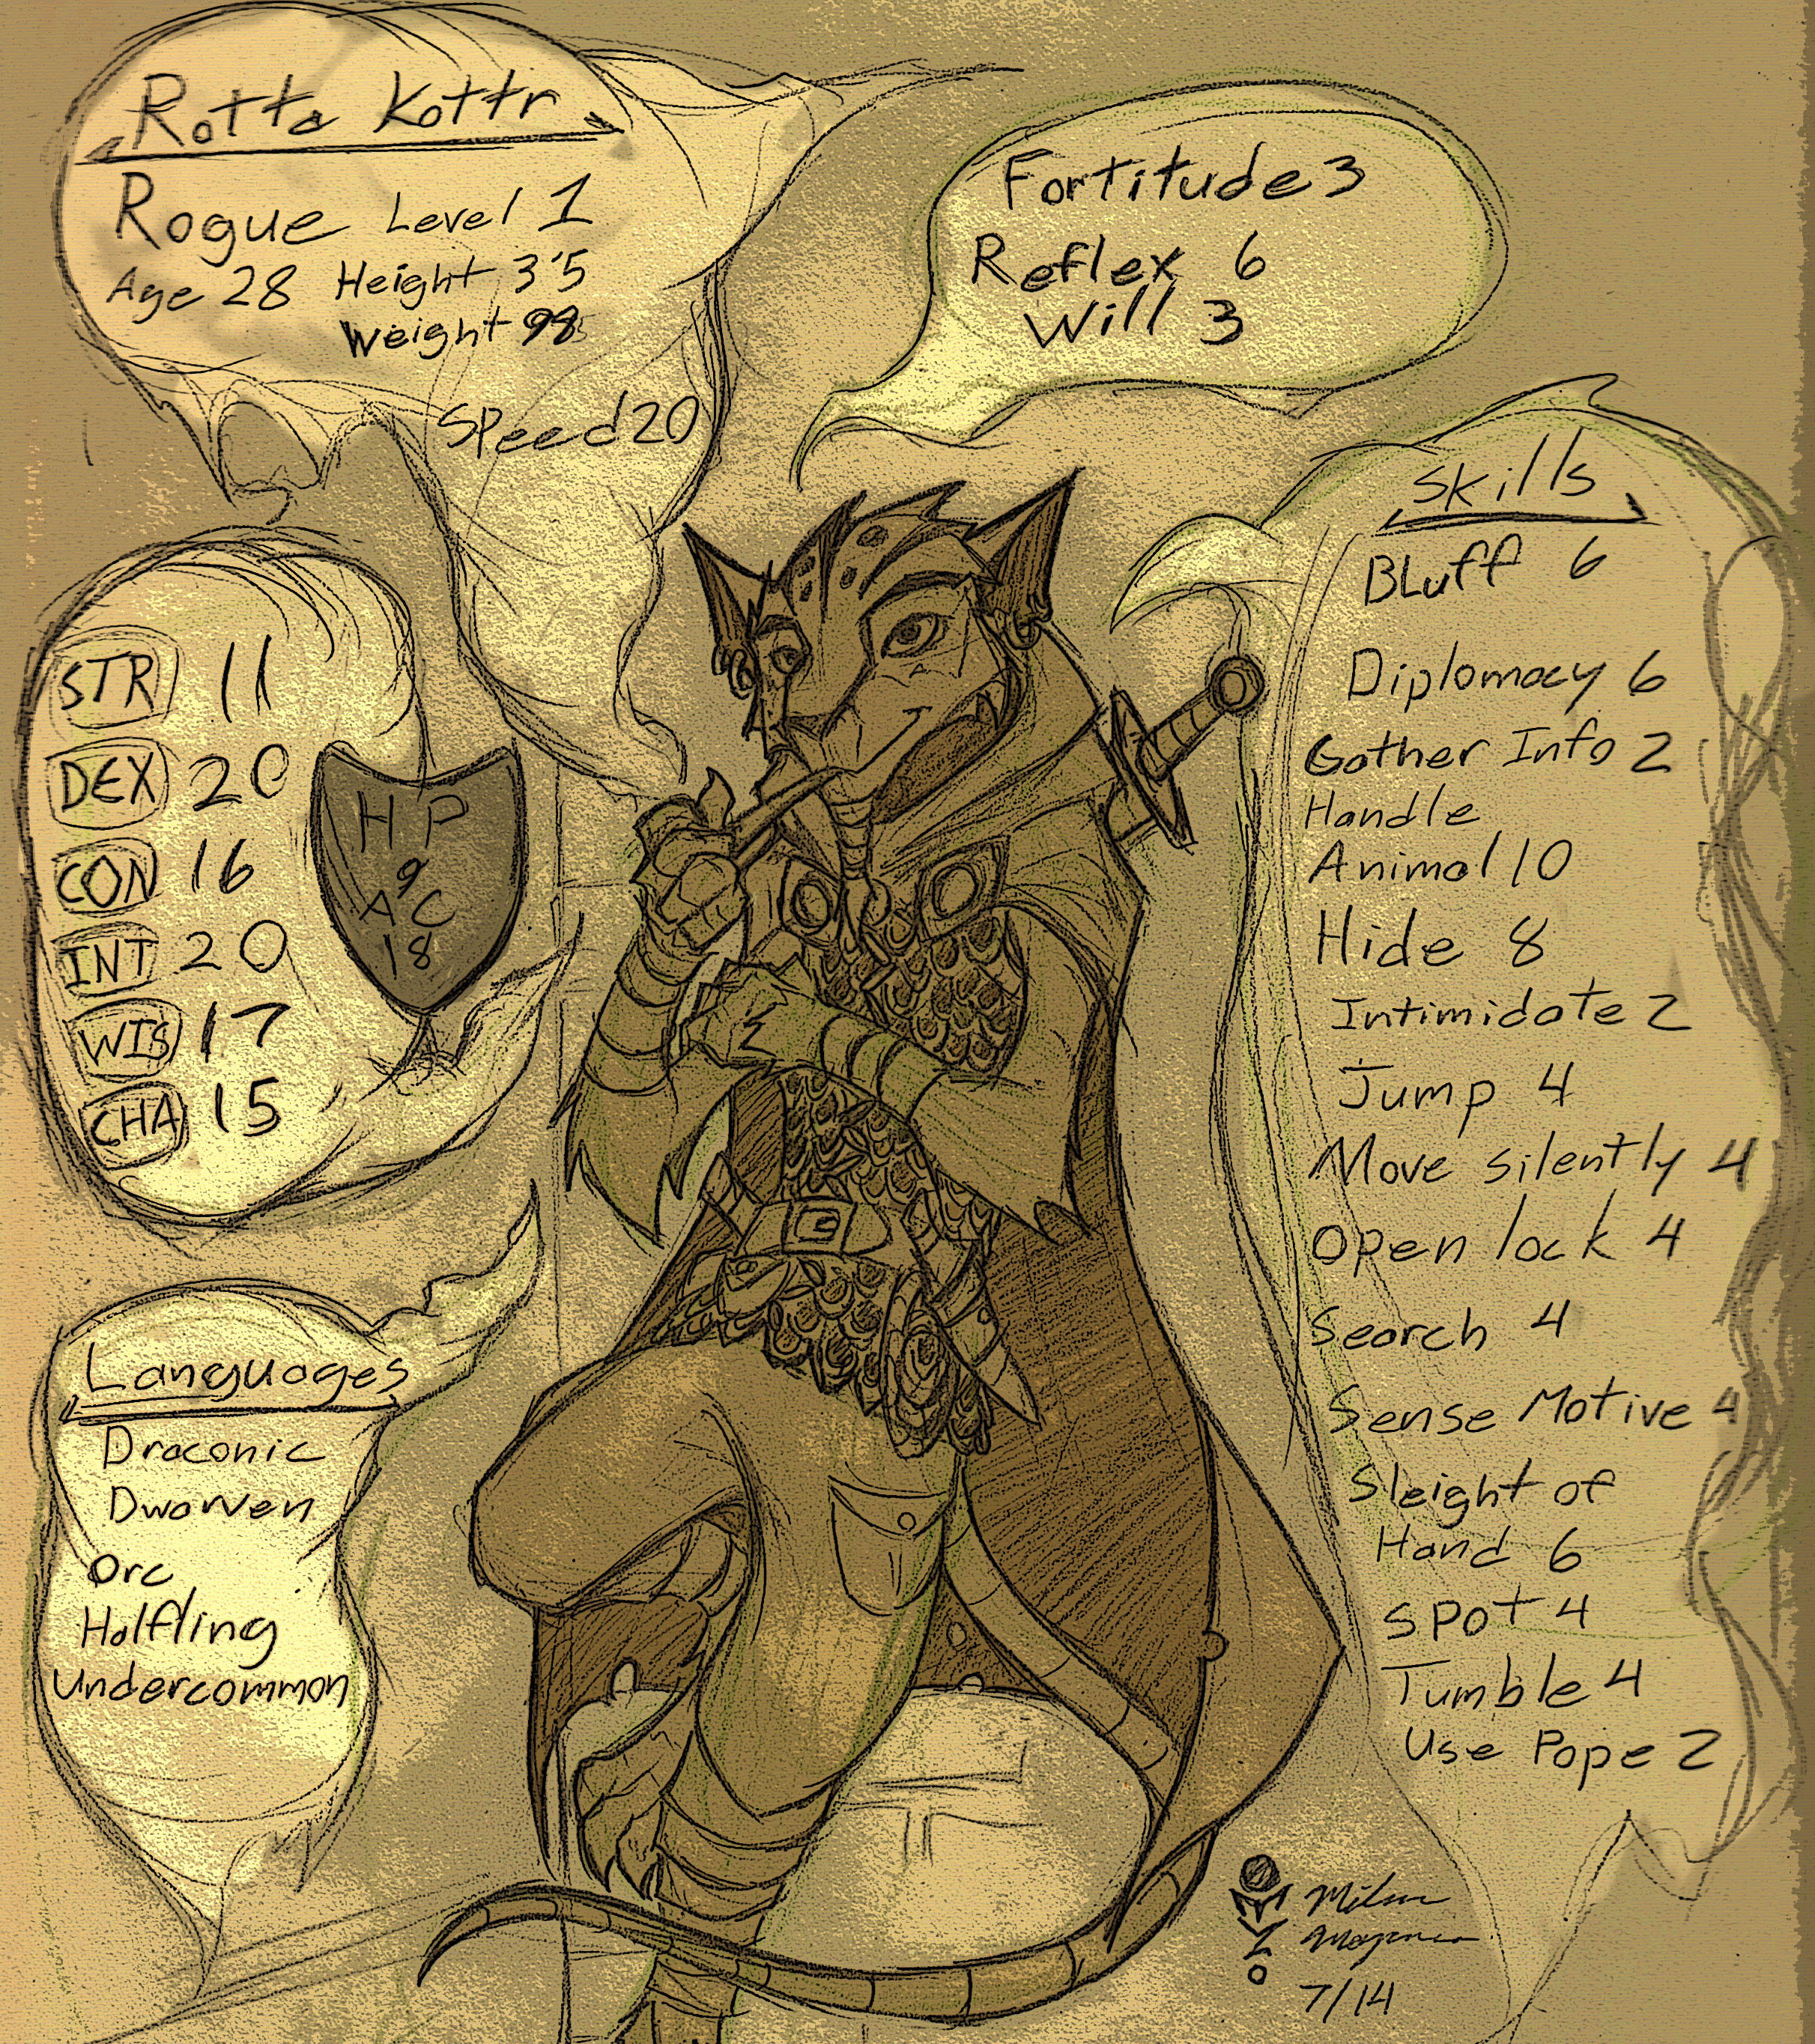 Rotta Kottr
Rogue Level 1
Age 28 Height 3'5
Weight 98
Speed 20
Fortitude 3
Reflex 6
Will 3
STR 11
DEX 20
CON 16
INT 20
WIS 17
CHA 15
HP
9
AC
18
Languages
Draconic
Dwarven
Orc
Halfling
Undercommon
Skills
Bluff 6
Diplomacy 6
Gather Info 2
Handle
Animal 10
Hide 8
Intimidate 2
Jump 4
Move silently 4
Open lock 4
Search 4
Sense Motive 4
Sleight of
Hand 6
Spot 4
Tumble 4
Use Pope 2
7/14